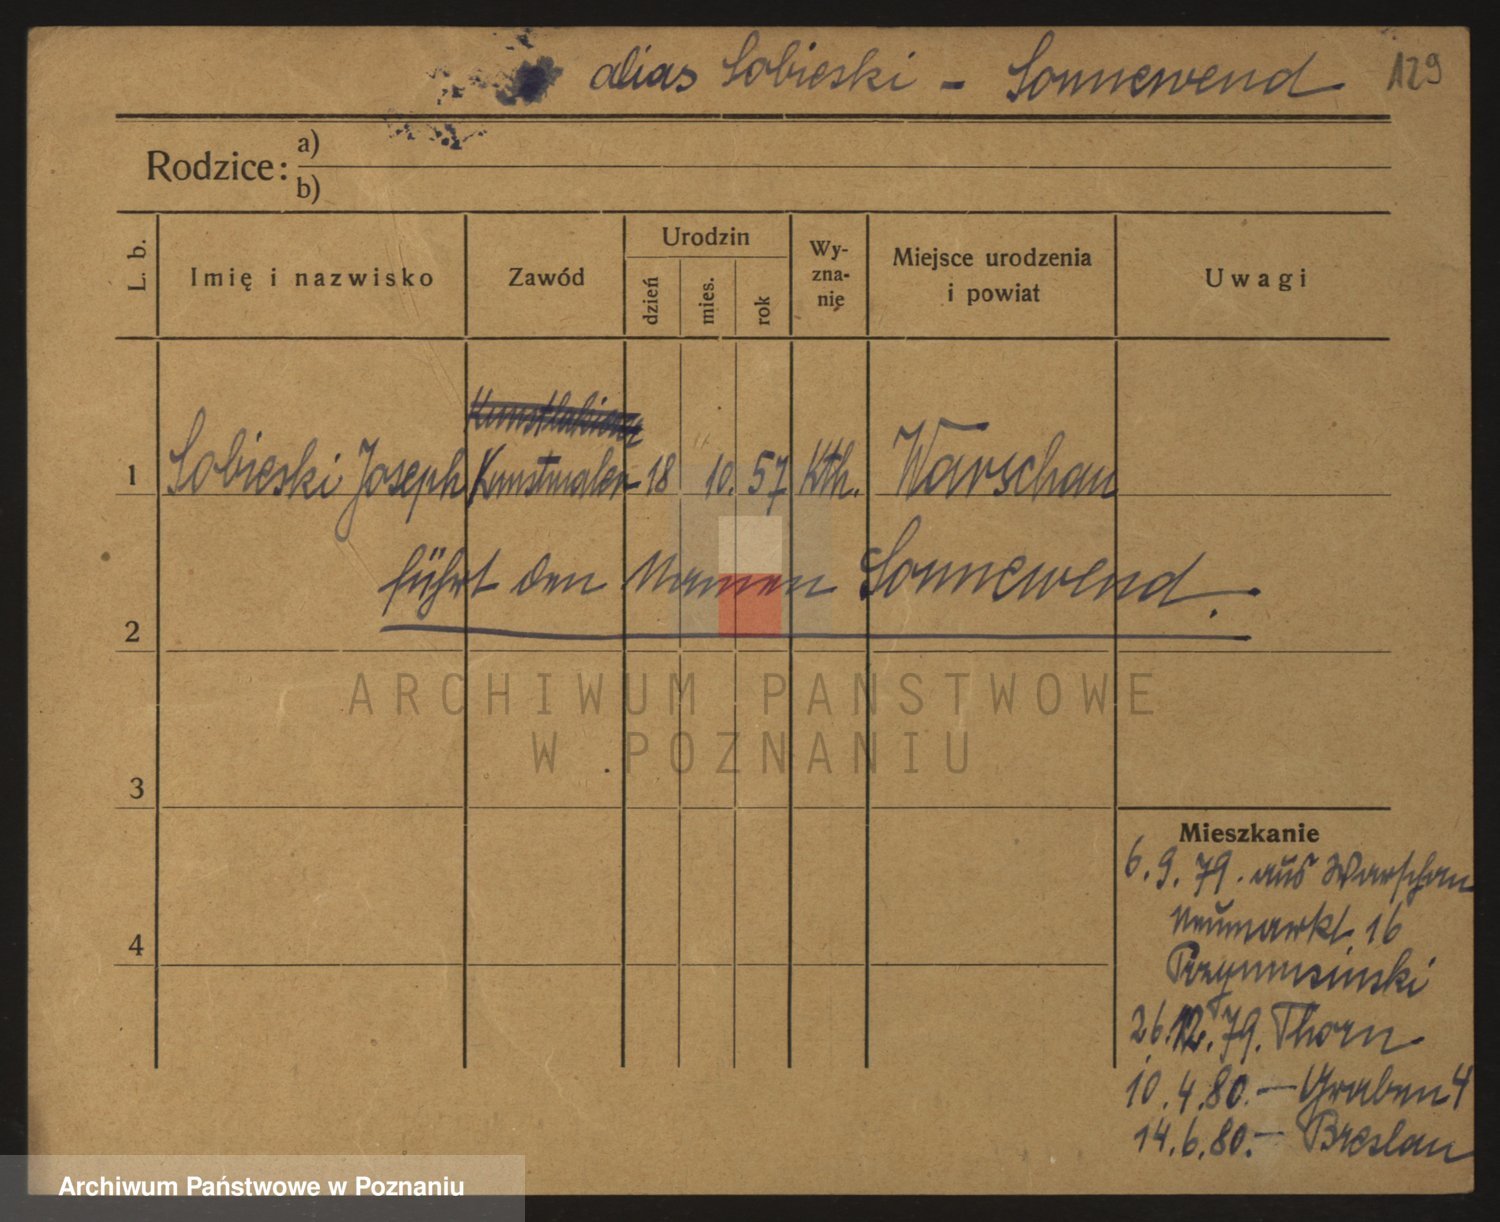 alias Sobieski - Sonnewend 129
Rodzice: a)
b)
L. b.
Imię i nazwisko
Zawód
Urodzin
dzień
mies.
rok
Wy-
zna-
nie
Miejsce urodzenia
i powiat
Uwagi
1 Sobieski Joseph Kunstmaler 18 10. 57 Kth. Warschau
führt den Namen Sonnewend.
2
3
4
Mieszkanie
6.9.79. aus Warschau
Neumarkt 16
26.12.79. Thorn
10.4.80. — Graben 4
14.6.80. — Breslau
ARCHIWUM PAŃSTWOWE
W POZNANIU
Archiwum Państwowe w Poznaniu